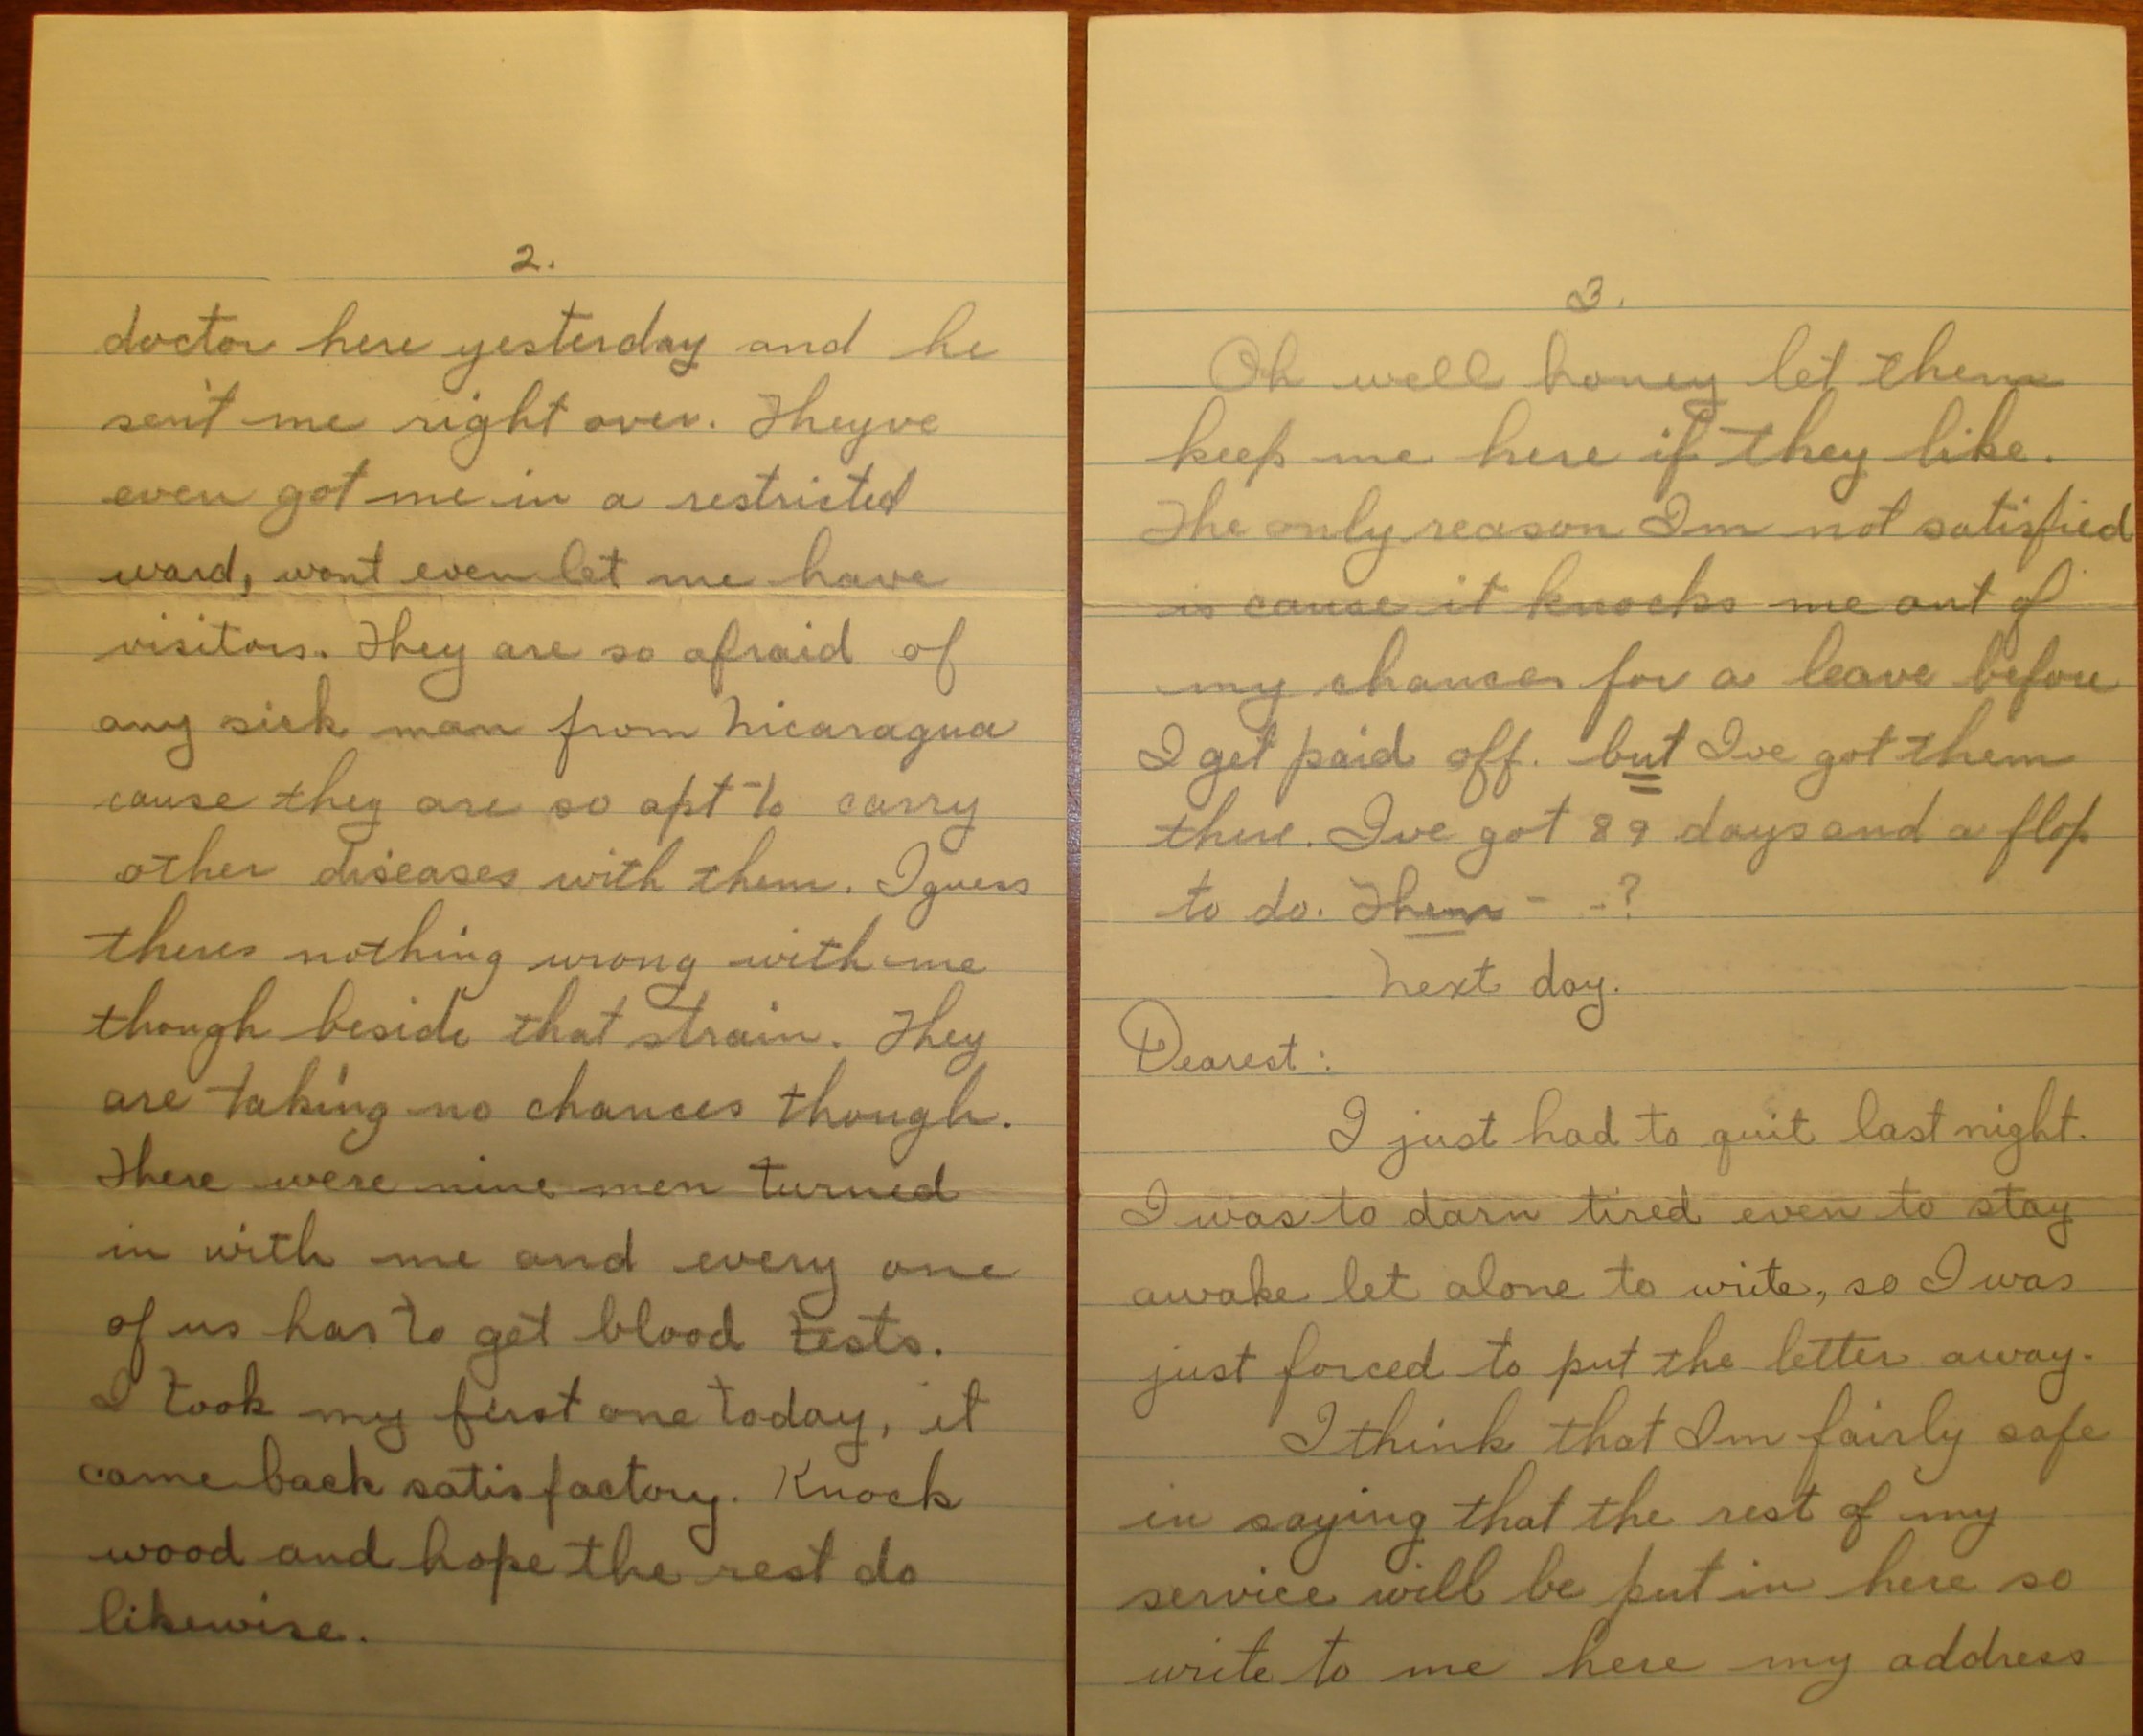 2.
doctor here yesterday and he
sent me right over. Theyve
even got me in a restricted
ward, wont even let me have
visitors. They are so afraid of
any sick man from Nicaragua
cause they are so apt to carry
other diseases with them. I guess
theres nothing wrong with me
though beside that strain. They
are taking no chances though.
There were nine men turned
in with me and every one
of us has to get blood tests.
I took my first one today, it
came back satisfactory. Knock
wood and hope the rest do
likewise.
3.
Oh well honey let them
keep me here if they like.
The only reason Im not satisfied
is cause it knocks me out of
my chances for a leave before
I get paid off. but Ive got them
there. Ive got 89 days and a flop
to do. Then - - ?
Next day.
Dearest:
I just had to quit last night.
I was to darn tired even to stay
awake let alone to write, so I was
just forced to put the letter away.
I think that Im fairly safe
in saying that the rest of my
service will be put in here so
write to me here my address